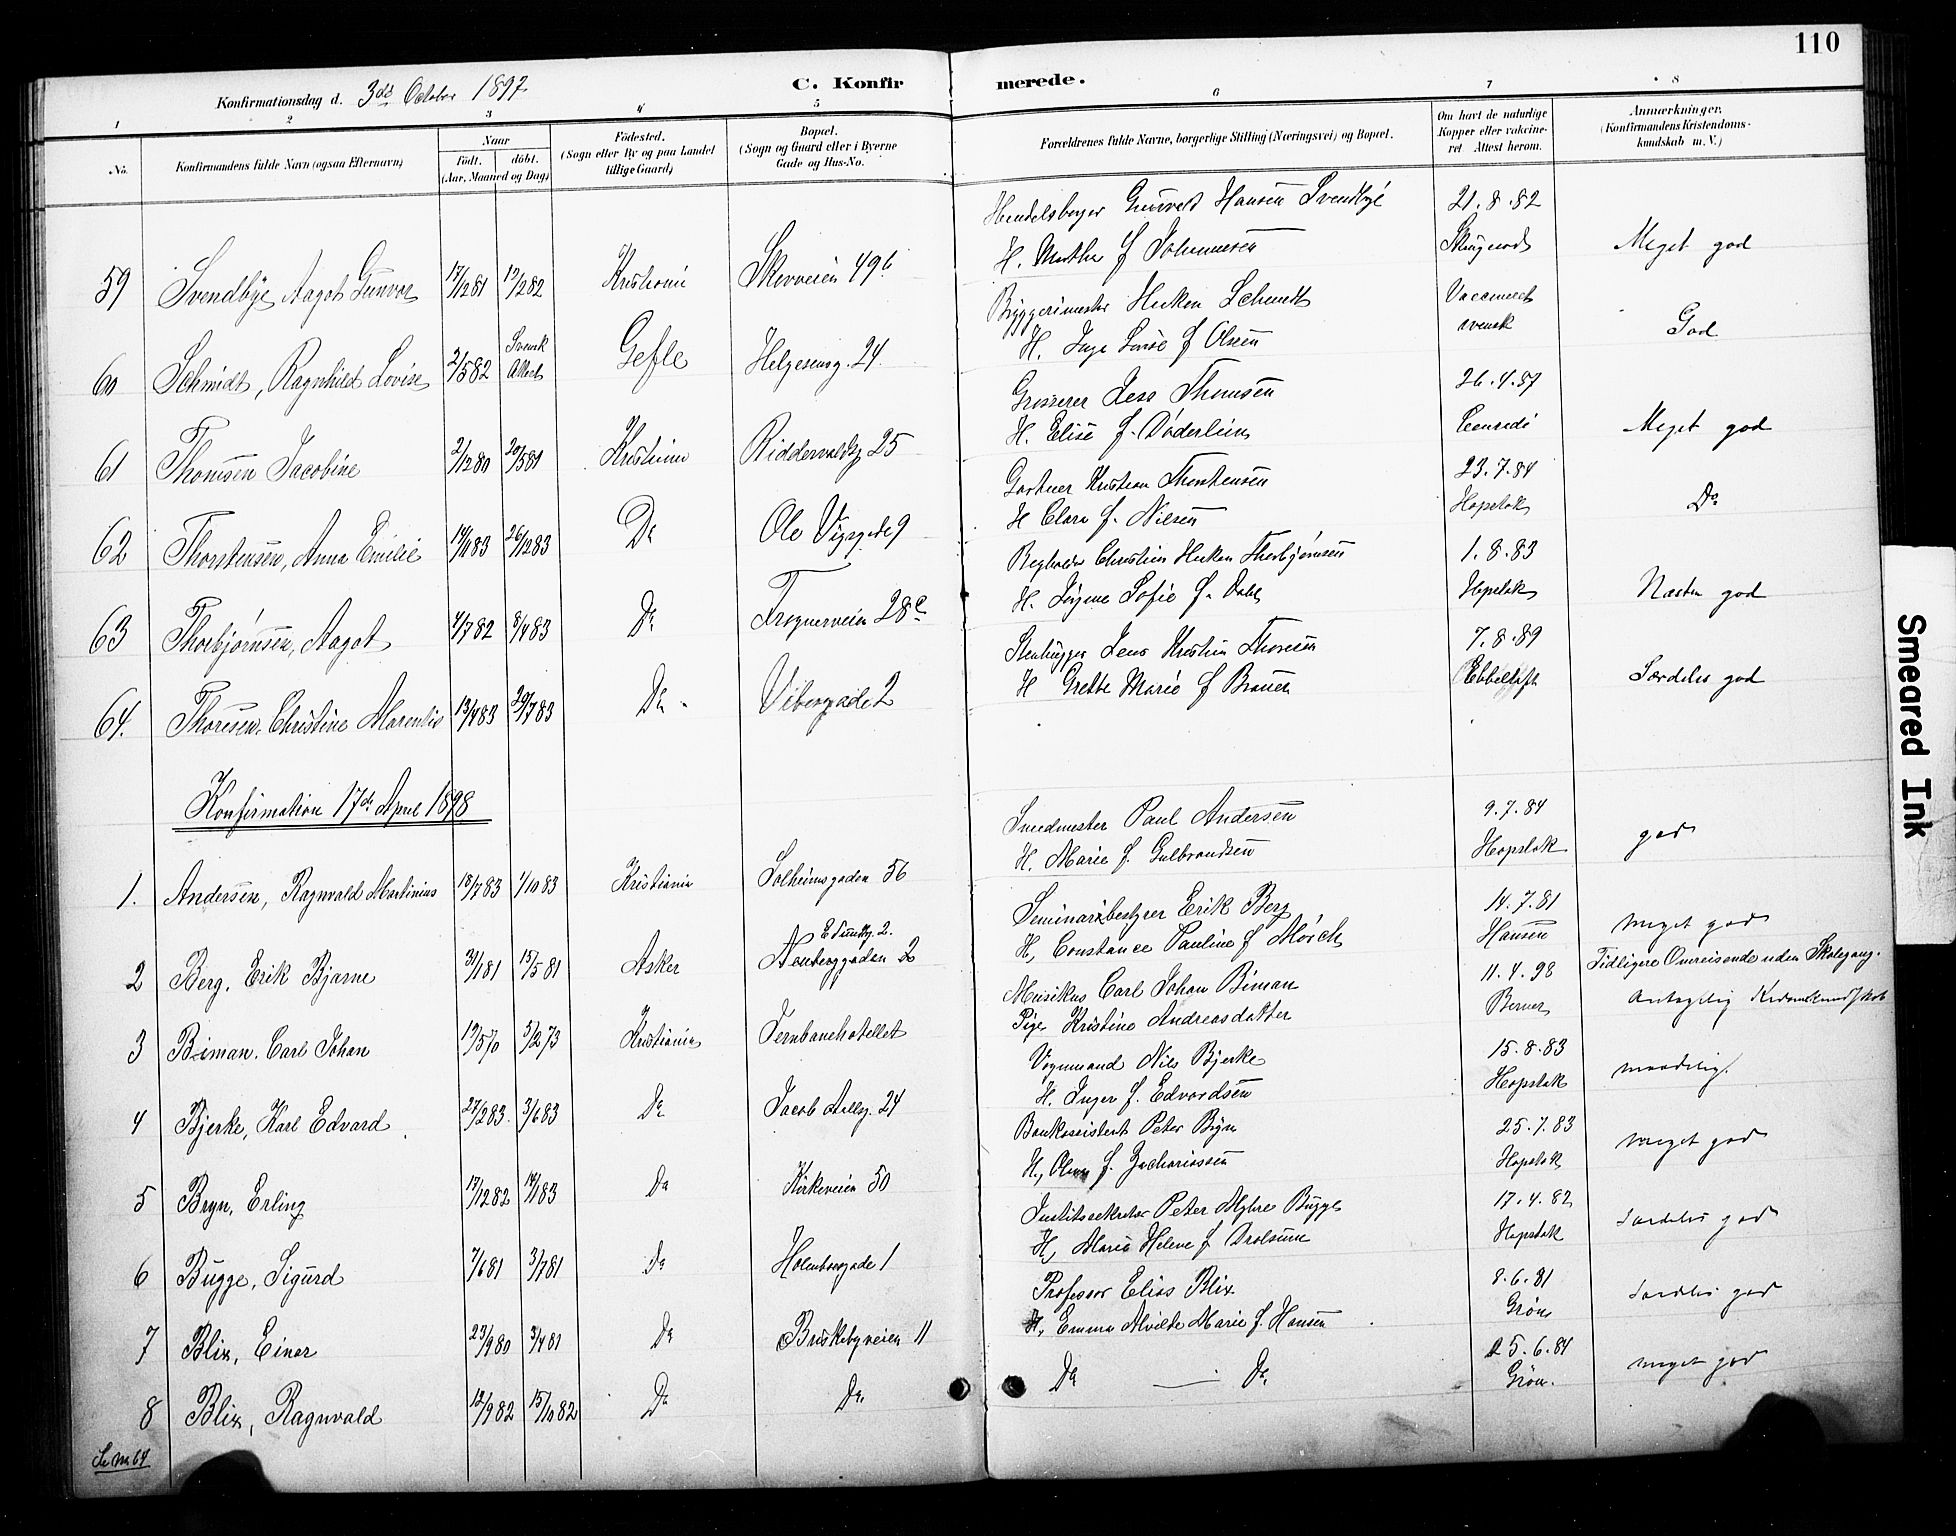 110
Konfirmationsdag d. 3die October 1897
C. Konfirmerede.
1 2 3 4 5 6 7 8
No. Konfirmandens fulde Navn (ogsaa Efternavn) Naar født. døbt. (Aar, Maaned og Dag) Fødested. (Sogn eller By og paa Landet tillige Gaard) Bopæl. (Sogn og Gaard eller i Byerne Gade og Hus-No. Forældrenes fulde Navne, borgerlige Stilling (Næringsvei) og Bopæl. Om havt de naturlige Kopper eller vaccineret Attest herom. Anmærkninger. (Konfirmandens Kristendomskundskab m. V.)
Hansen Svendbye 21.8.82
59 Svendbye Aagot Gunvor 17/12 81 19/2 82 Skovveien 49b H. f Johannesen Meget god
Schmidt Vaccineret
60 Schmidt, Ragnhild Lovise 2/5 82 Svensk Attest Gefle Helgesensg. 24 H. f Olsen svensk God
Grosserer Jess Thomsen 26.4.87
61 Thomsen Jacobine 2/12 80 20/5 81 Kristiania Riddervoldsg 25 H. Elise f. Døderlein Meget god
Gartner Kristian Thorstensen 23.7.84
62 Thorstensen, Anna Emilie 26/12 83 Do Ole Vigsgade 9 H Clara f. Nilsen Hopstok Do
Christian Thorbjørnsen 1.8.83
63 Thorbjørnsen, Aagot 4/7 82 8/4 83 Do Frognerveien 28c H. Sofie f. Dahl Hopstok Næsten god
Stenhugger Jens Kristian Thoresen 7.8.89
64. Thoresen, Christine Marentie 13/4 83 Do Vibesgade 2 H Grethe Marie f Ebbeltoft Særdeles god
Konfirmation 17de April 1898
Smedmester Paul Andersen 9.7.84
1. Andersen, Ragnvald Martinius 18/7 83 1/10 83 Kristiania Solheimsgaden 56 H. Marie f. Gulbrandsen Hopstok god
Seminariebestyrer Erik Berg 14.7.81
2 Berg, Erik Bjarne 15/5 81 Asker H, Constance Pauline f Mørch Hansen meget god
Musikus Carl Johan Biman 11.4.98 Tidligere Omreisende uden Skolegang.
3 Biman. Carl Johan 19/5 70 5/2 73 Kristiania Jernbanehotellet Pige Kristine Andreasdatter Berner
Vognmand Nils Bjerke 15.8.83
4 Bjerke, Karl Edvard 27/2 83 3/6 83 Do Jacob Aallsg. 24 H. Inger f. Edvardsen Hopstok maadelig
Bankassistent Peter Bryn 25.7.83
5 Bryn, Erling 17/12 82 Do Kirkeveien 50 H, f. Zachariassen Hopstok meget god
Peter Myhre Bugge 17.4.82
6 Bugge, Sigurd 7/6 81 3/7 81 Do Holmboesgade 1 H, Marie Helene f Drolsum Hopstok særdeles god
Professor Elias Blix 8.6.81
7 Blix, Einar 23/9 80 3/4 81 Do Briskebyveien 11 H, Emma Alvilde Marie f. Hansen Grøn særdeles god
25.6.84
8 Blix, Ragnvald 12/9 82 15/10 82 Do Do Do — Do Grøn. meget god
Se No 64
Smeared Ink